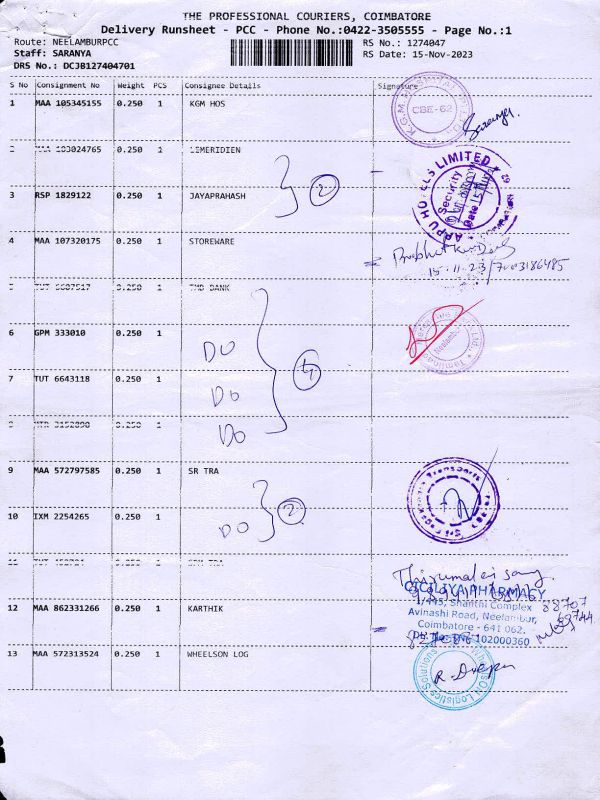 THE PROFESSIONAL COURIERS, COIMBATORE
Delivery Runsheet - PCC - Phone No.:0422-3505555 - Page No.:1
Route: NEELAMBURPCC RS No.: 1274047
Staff: SARANYA RS Date: 15-Nov-2023
DRS No.: DCJB127404701
S No Consignment No Weight PCS Consignee Details Signature
1 MAA 105345155 0.250 1 KGM HOS
CBE-62
2 103024765 0.250 1 LEMERIDIEN
APPU HOTELS LIMITED
Security
Date 15
3 RSP 1829122 0.250 1 JAYAPRAHASH
2
4 MAA 107320175 0.250 1 STOREWARE
15-11-23/7003186485
5 TUT 6607517 0.250 1 TMB BANK
6 GPM 333010 0.250 1
DO
Neelambur
7 TUT 6643118 0.250 1
DO
4
8 MTR 3152890 0.250 1
DO
9 MAA 572797585 0.250 1 SR TRA
10 IXM 2254265 0.250 1
DO
2
11 TUT 0.250 1 SRM TRA
Thirumalaisamy
CICILIYA PHARMACY
12 MAA 862331266 0.250 1 KARTHIK
1/445, Shanthi Complex
Avinashi Road, Neelambur,
Coimbatore - 641 062.
102000360
13 MAA 572313524 0.250 1 WHEELSON LOG
WheelsON Logistics Solutions